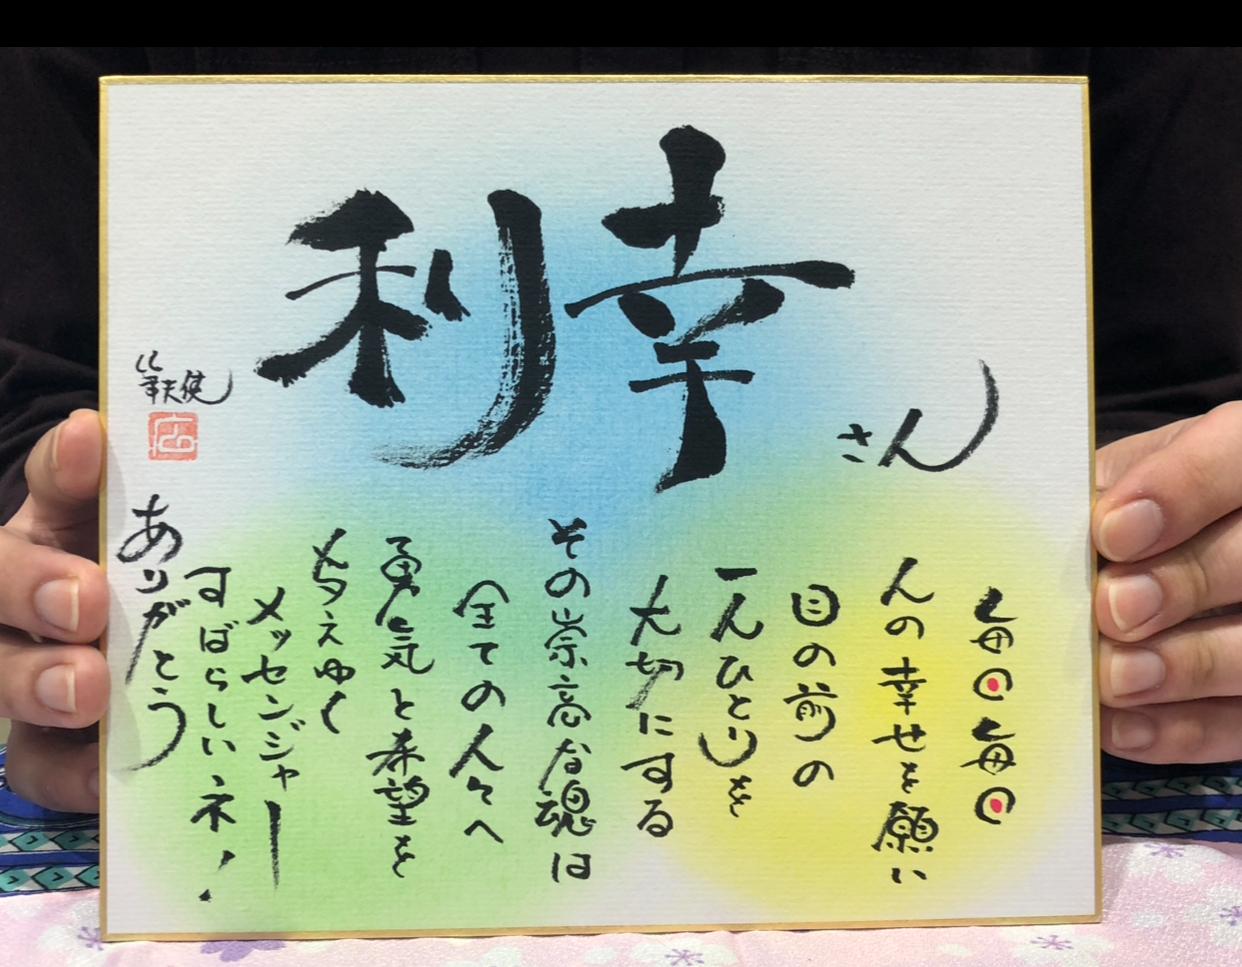 利幸さん
毎日毎日
人の幸せを願い
目の前の
一人ひとりを
大切にする
その崇高な魂は
全ての人々へ
勇気と希望を
与えゆく
メッセンジャー
すばらしいネ!
ありがとう
筆天使